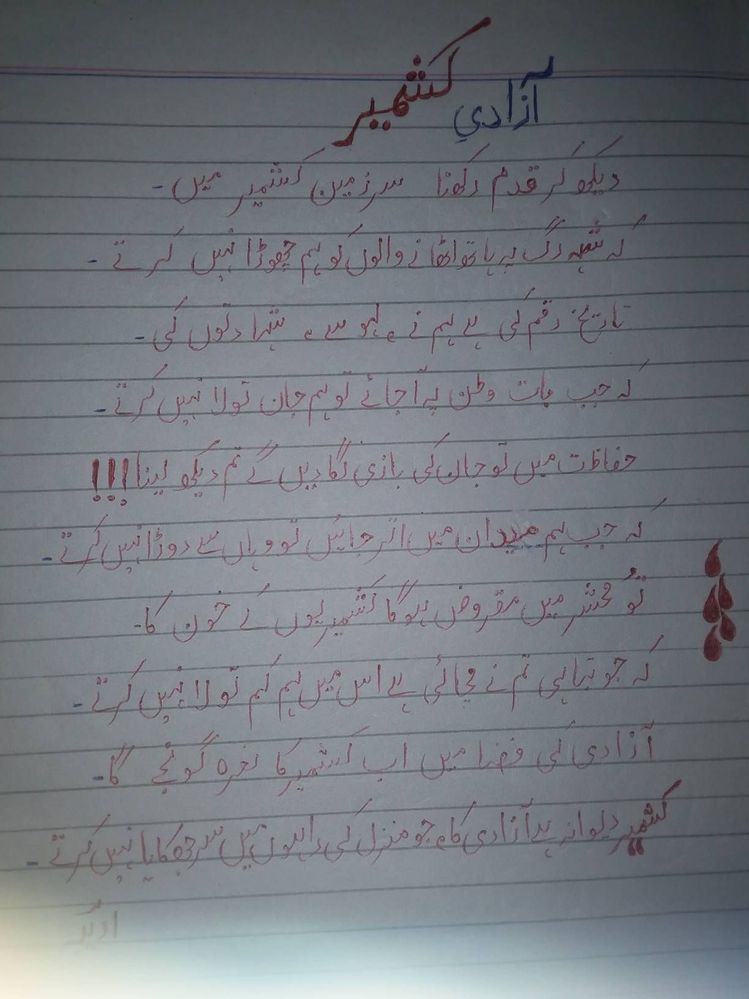 آزادیِ کشمیر
دیکھ کر قدم رکھنا سرزمین کشمیر میں۔
کہ شہہ رگ پہ ہاتھ اٹھانے والوں کو ہم چھوڑا نہیں کرتے۔
تاریخ رقم کی ہے ہم نے، لہو سے، شہادتوں کی۔
کہ جب بات وطن پہ آ جائے تو ہم جان تولا نہیں کرتے۔
حفاظت میں تو جان کی بازی لگا دیں گے تم دیکھ لینا!!!
کہ جب ہم میدان میں اتر جائیں تو وہاں سے دوڑا نہیں کرتے۔
تُو محشر میں مقروض ہوگا کشمیریوں کے خون کا۔
کہ جو تباہی تم نے مچائی ہے اس میں ہم کم تولا نہیں کرتے۔
آزادی کی فضا میں اب کشمیر کا نعرہ گونجے گا۔
کشمیر دیوانہ ہے آزادی کا، جو منزل کی راہوں میں سر جھکایا نہیں کرتے۔